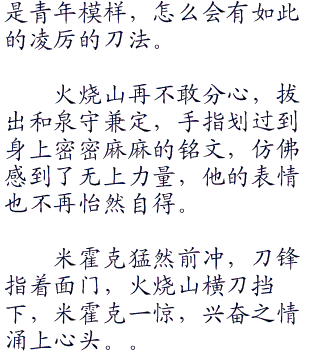 是青年模样，怎么会有如此
的凌厉的刀法。
火烧山再不敢分心，拔
出和泉守兼定，手指划过到
身上密密麻麻的铭文，仿佛
感到了无上力量，他的表情
也不再怡然自得。
米霍克猛然前冲，刀锋
指着面门，火烧山横刀挡
下，米霍克一惊，兴奋之情
涌上心头。。